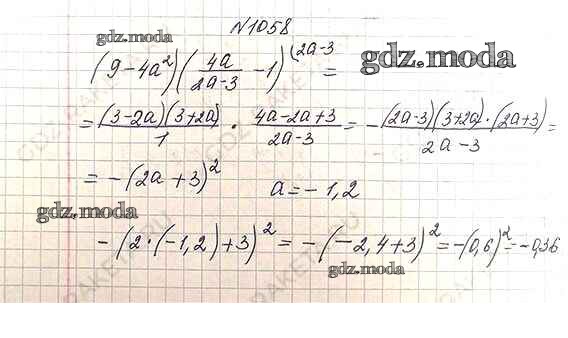 №1058
gdz.moda
(9-4a²)(4a/(2a-3) -1) (2a-3 =
gdz.moda
= (3-2a)(3+2a)/1 · (4a-2a+3)/(2a-3) = - (2a-3)(3+2a)·(2a+3)/(2a-3) =
= -(2a+3)² a=-1,2
gdz.moda
-(2·(-1,2)+3)² = -(-2,4+3)² = -(0,6)² = -0,36
gdz.moda